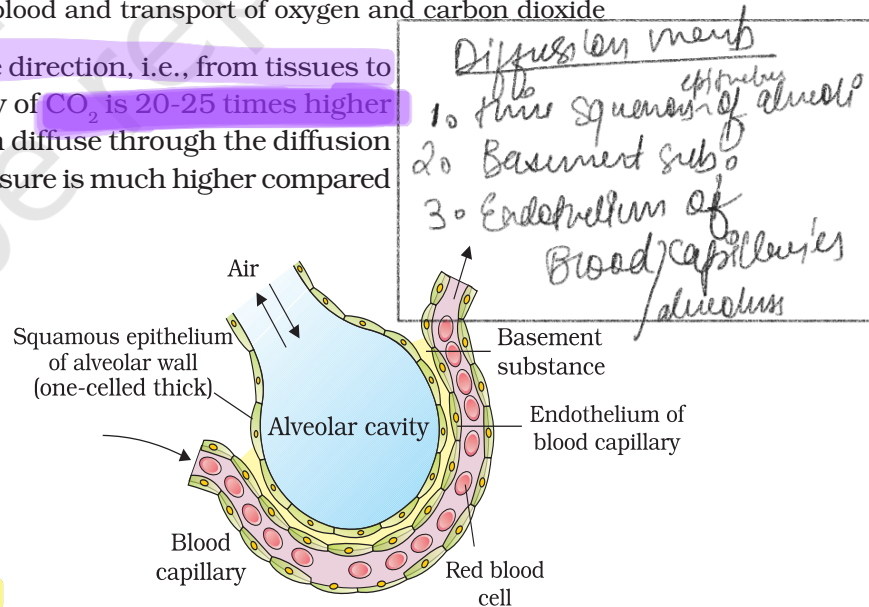 blood and transport of oxygen and carbon dioxide
e direction, i.e., from tissues to
y of CO₂ is 20-25 times higher
n diffuse through the diffusion
sure is much higher compared
Diffussion memb
epithelium
1. thin squamous of alveoli
2. Basement subs.
3. Endothelium of
Blood capillaries
alveolus
Air
Squamous epithelium
of alveolar wall
(one-celled thick)
Basement
substance
Alveolar cavity
Endothelium of
blood capillary
Blood
capillary
Red blood
cell